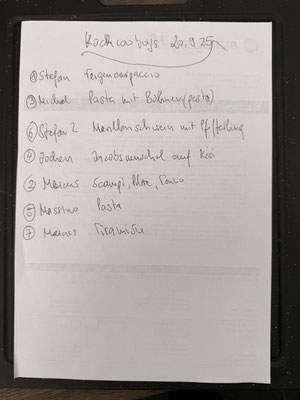 Kochcowboys 20.9.25
① Stefan
③ Michael Pasta mit Bohnen (pesto)
⑥ Stefan 2 mit Pfifferling
④ Jochen Jacobsmuschel auf
② Marcus Scampi,
⑤ Massimo Pasta
⑦ Marcus Tiramisu